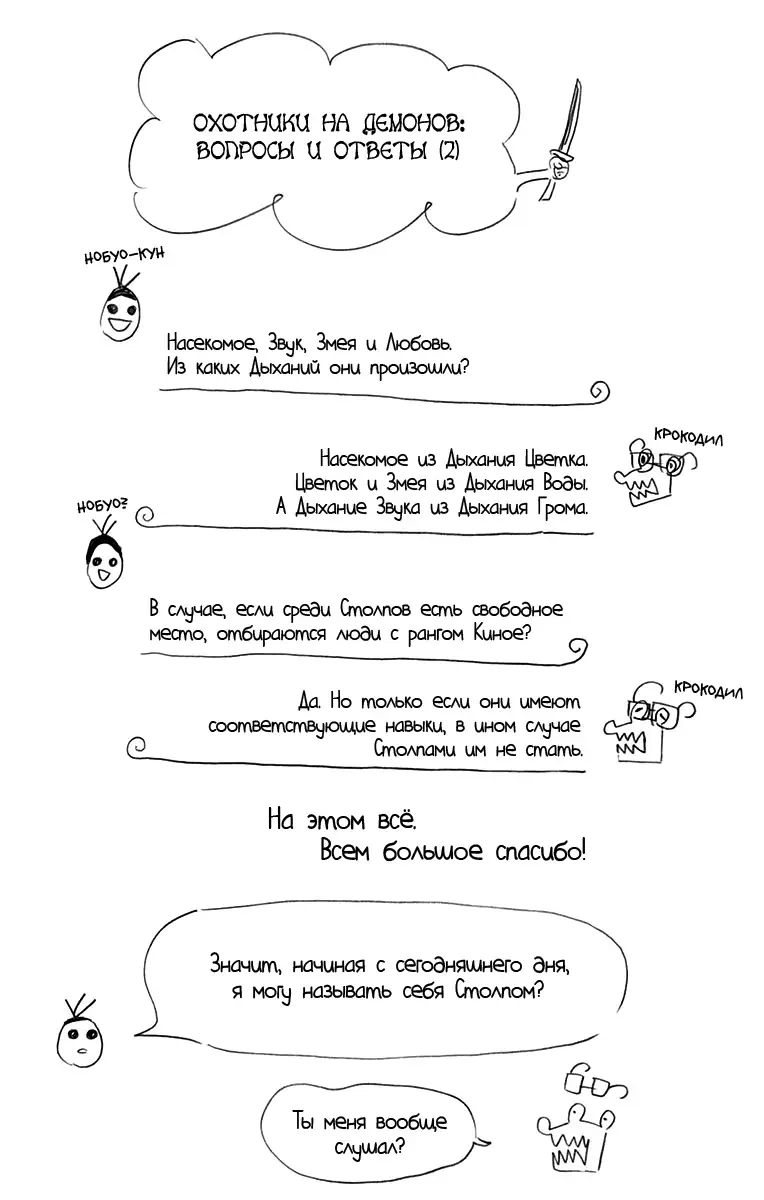 ОХОТНИКИ НА ДЕМОНОВ:
ВОПРОСЫ И ОТВЕТЫ (2)
НОБУО-КУН
Насекомое, Звук, Змея и Любовь.
Из каких Дыханий они произошли?
КРОКОДИЛ
Насекомое из Дыхания Цветка.
Цветок и Змея из Дыхания Воды.
А Дыхание Звука из Дыхания Грома.
НОБУО?
В случае, если среди Столпов есть свободное
место, отбираются люди с рангом Киное?
КРОКОДИЛ
Да. Но только если они имеют
соответствующие навыки, в ином случае
Столпами им не стать.
На этом всё.
Всем большое спасибо!
Значит, начиная с сегодняшнего дня,
я могу называть себя Столпом?
Ты меня вообще
слушал?